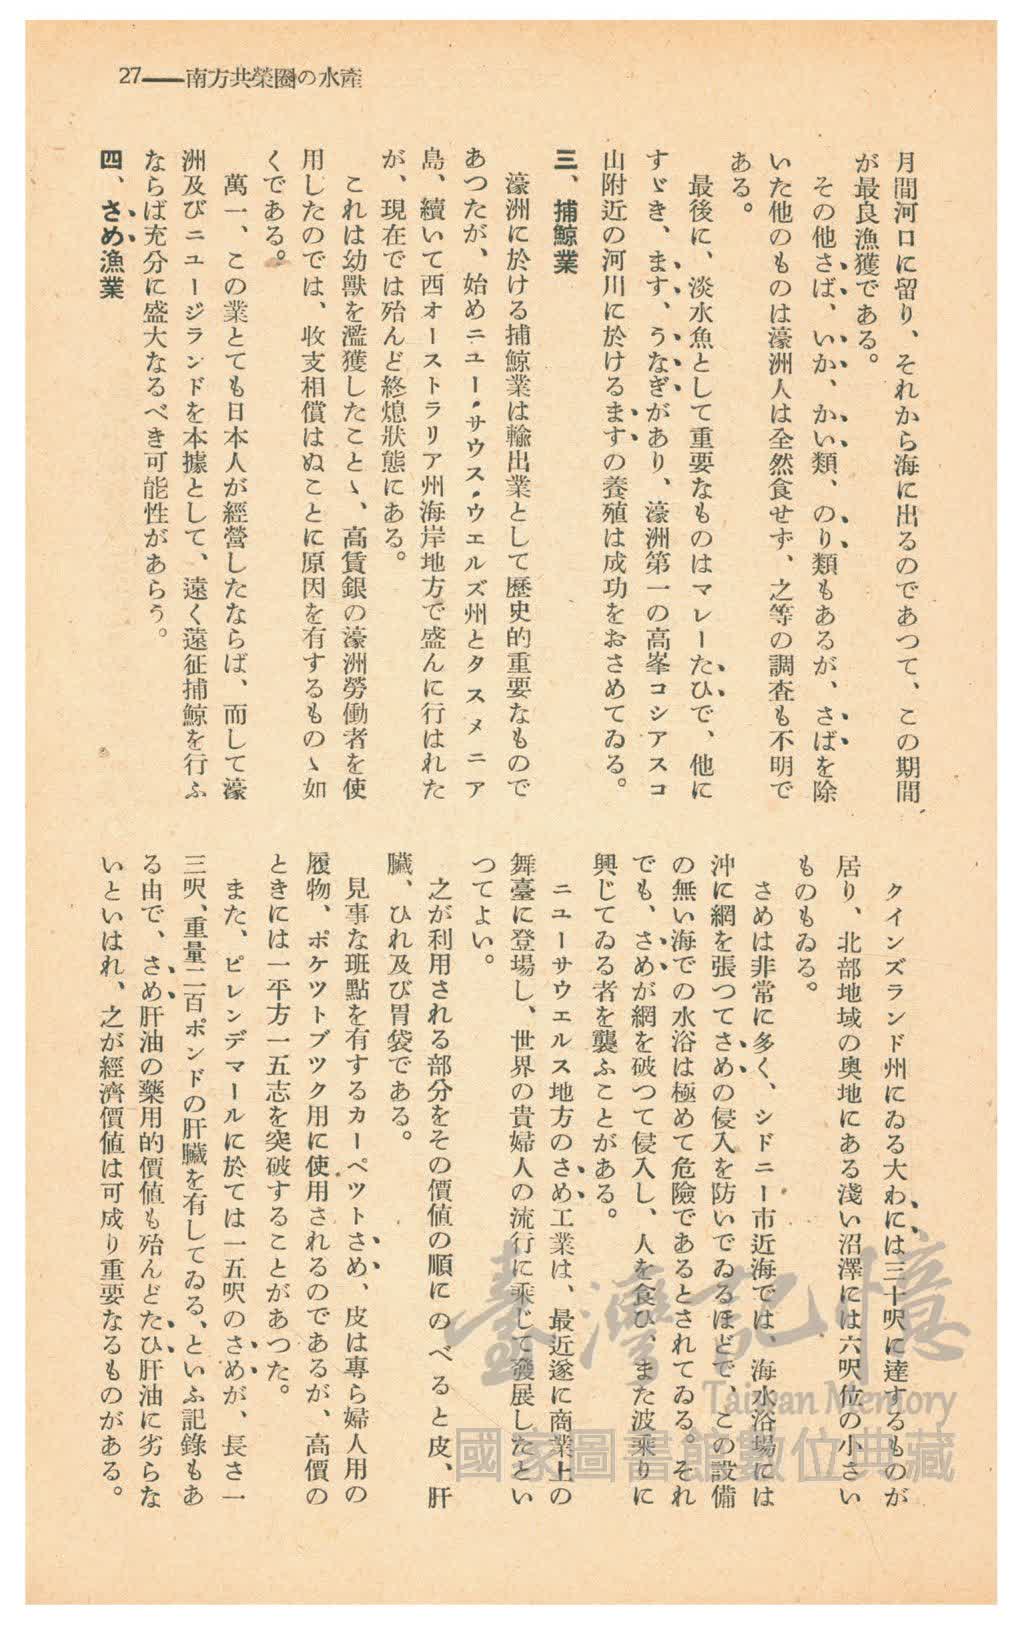 27——南方共榮圈の水產
月間河口に留り、それから海に出るのであつて、この期間
が最良漁獲である。
その他さば、いか、かい類、のり類もあるが、さばを除
いた他のものは濠洲人は全然食せず、之等の調査も不明で
ある。
最後に、淡水魚として重要なものはマレーたひで、他に
すゞき、ます、うなぎがあり、濠洲第一の高峯コシアスコ
山附近の河川に於けるますの養殖は成功をおさめてゐる。
三、捕鯨業
濠洲に於ける捕鯨業は輸出業として歷史的重要なもので
あつたが、始めニユー・サウス・ウエルズ州とタスメニア
島、續いて西オーストラリア州海岸地方で盛んに行はれた
が、現在では殆んど終熄狀態にある。
これは幼獸を濫獲したことゝ、高賃銀の濠洲勞働者を使
用したのでは、收支相償はぬことに原因を有するものゝ如
くである。
萬一、この業とても日本人が經營したならば、而して濠
洲及びニユージランドを本據として、遠く遠征捕鯨を行ふ
ならば充分に盛大なるべき可能性があらう。
四、さめ漁業
クインズランド州にゐる大わには三十呎に達するものが
居り、北部地域の奧地にある淺い沼澤には六呎位の小さい
ものもゐる。
さめは非常に多く、シドニー市近海では、海水浴場には
沖に網を張つてさめの侵入を防いでゐるほどで、この設備
の無い海での水浴は極めて危險であるとされてゐる。それ
でも、さめが網を破つて侵入し、人を食ひ、また波乘りに
興じてゐる者を襲ふことがある。
ニユーサウエルス地方のさめ工業は、最近遂に商業上の
舞臺に登場し、世界の貴婦人の流行に乘じて發展したとい
つてよい。
之が利用される部分をその價値の順にのべると皮、肝
臟、ひれ及び胃袋である。
見事な斑點を有するカーペツトさめ、皮は專ら婦人用の
履物、ポケツトブツク用に使用されるのであるが、高價の
ときには一平方一五志を突破することがあつた。
また、ピレンデマールに於ては一五呎のさめが、長さ一
三呎、重量二百ポンドの肝臟を有してゐる、といふ記錄もあ
る由で、さめ肝油の藥用的價値も殆んどたひ肝油に劣らな
いといはれ、之が經濟價値は可成り重要なるものがある。
臺灣記憶
Taiwan Memory
國家圖書館數位典藏